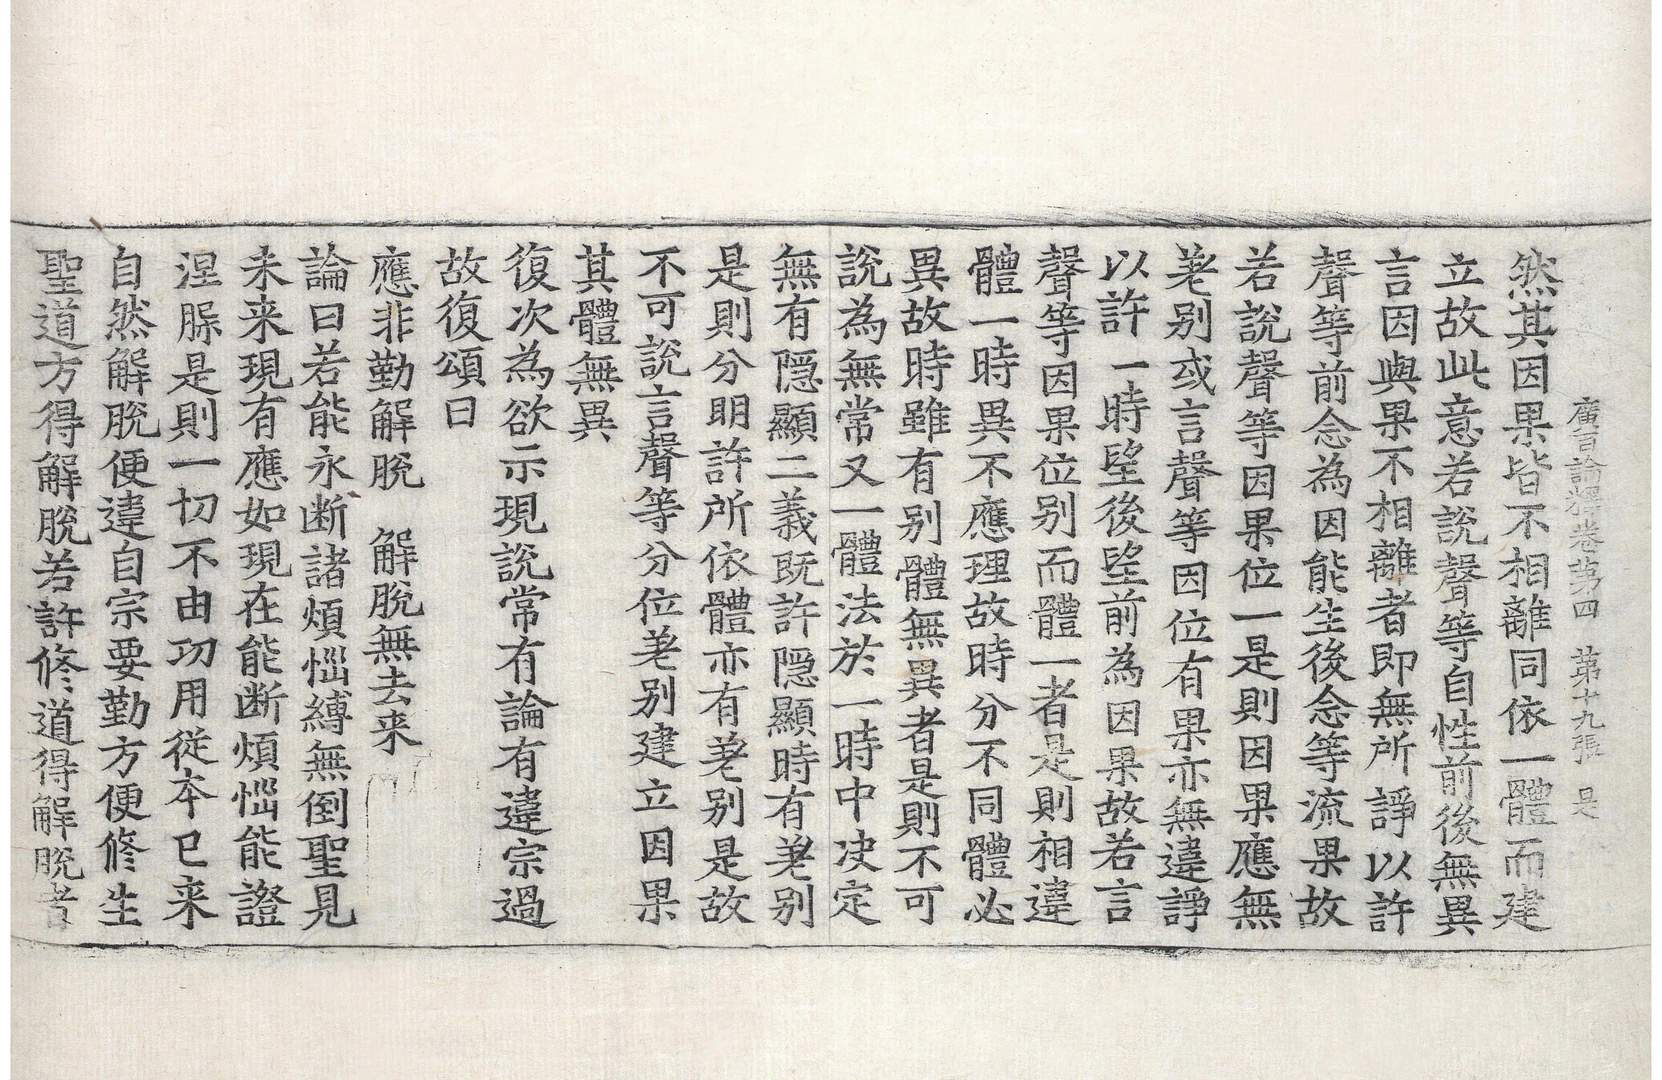 廣百論釋卷第四 第十九張 是
然其因果皆不相離同依一體而建
立故此意若說聲等自性前後無異
言因與果不相離者即無所諍以許
聲等前念為因能生後念等流果故
若說聲等因果位一是則因果應無
差別或言聲等因位有果亦無違諍
以許一時望後望前為因果故若言
聲等因果位别而體一者是則相違
體一時異不應理故時分不同體必
異故時雖有别體無異者是則不可
說為無常又一體法於一時中决定
無有隱顯二義既許隱顯時有差别
是則分明許所依體亦有差别是故
不可說言聲等分位差别建立因果
其體無異
復次為欲示現說常有論有違宗過
故復頌曰
應非勤解脫 解脫無去来
論曰若能永断諸煩惱縛無倒聖見
未来現有應如現在能断煩惱能證
涅槃是則一切不由功用從本已来
自然解脫便違自宗要勤方便修生
聖道方得解脫若許修道得解脫者